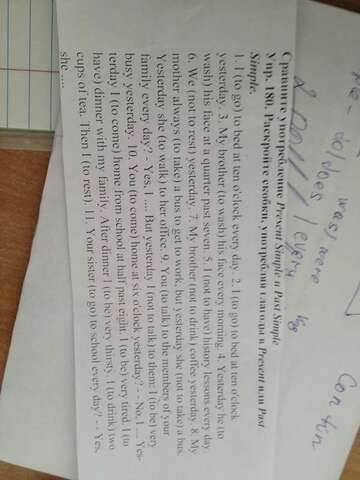 Сравните употребление Present Simple и Past Simple
Упр. 180. Раскройте скобки, употребляя глаголы в Present или Past
Simple.
1. I (to go) to bed at ten o'clock every day. 2. I (to go) to bed at ten o'clock
yesterday. 3. My brother (to wash) his face every morning. 4. Yesterday he (to
wash) his face at a quarter past seven. 5. I (not to have) history lessons every day.
6. We (not to rest) yesterday. 7. My brother (not to drink) coffee yesterday. 8. My
mother always (to take) a bus to get to work, but yesterday she (not to take) a bus.
Yesterday she (to walk) to her office. 9. You (to talk) to the members of your
family every day? - Yes, I .... But yesterday I (not to talk) to them: I (to be) very
busy yesterday. 10. You (to come) home at six o'clock yesterday? - - No, I .... Yes-
terday I (to come) home from school at half past eight. I (to be) very tired. I (to
have) dinner with my family. After dinner I (to be) very thirsty. I (to drink) two
cups of tea. Then I (to rest). 11. Your sister (to go) to school every day? - - Yes,
she ....
do/does
was/were
every